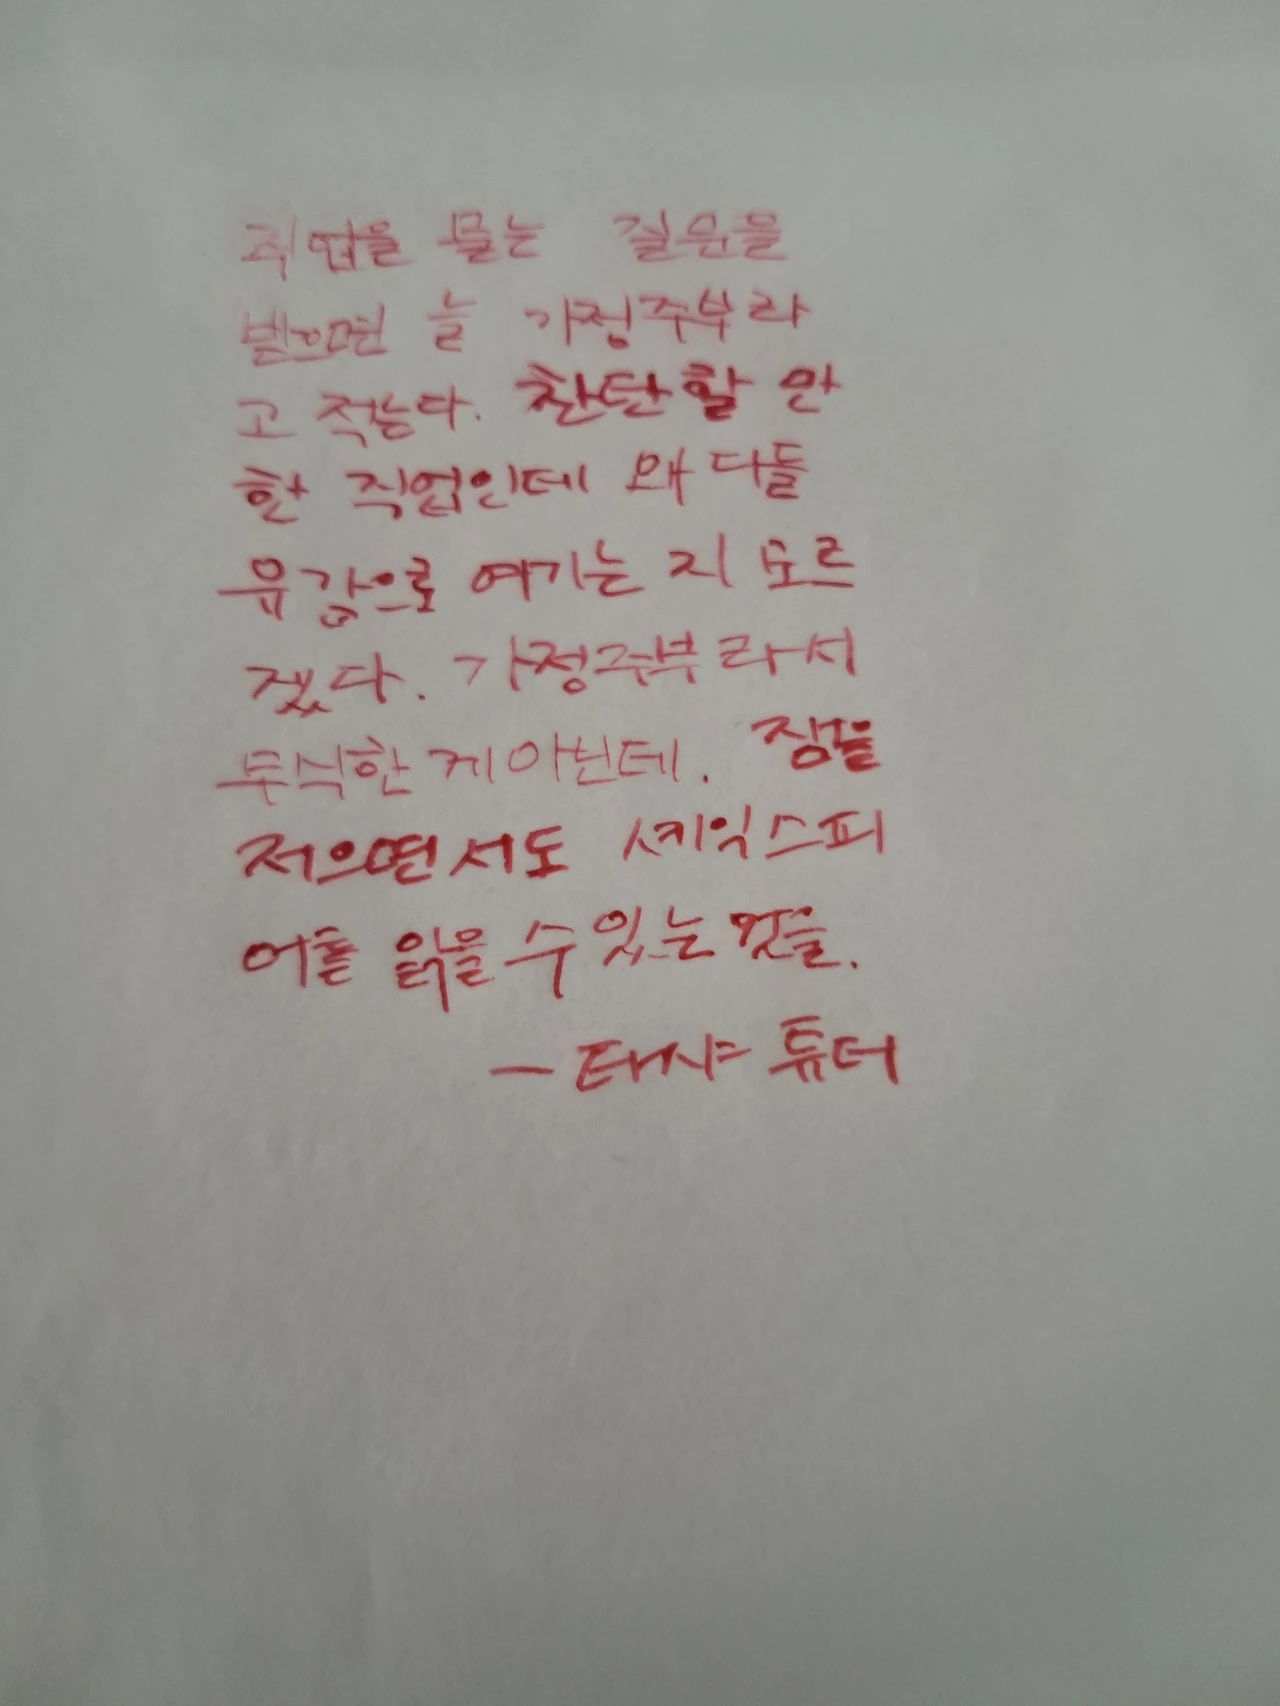 직업을 묻는 질문을
받으면 늘 가정주부라
고 적는다. 찬탄할 만
한 직업인데 왜 다들
유감으로 여기는 지 모르
겠다. 가정주부라서
무식한 게 아닌데. 잼을
저으면서도 셰익스피
어를 읽을 수 있는 것을.
- 타샤 튜더